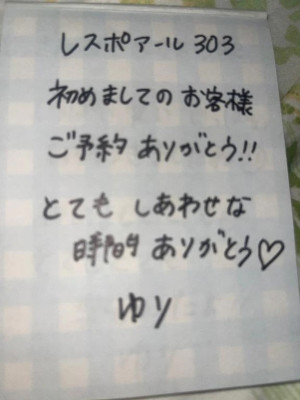 レスポアール 303
初めましてのお客様
ご予約 ありがとう!!
とても しあわせな
時間 ありがとう♡
ゆり